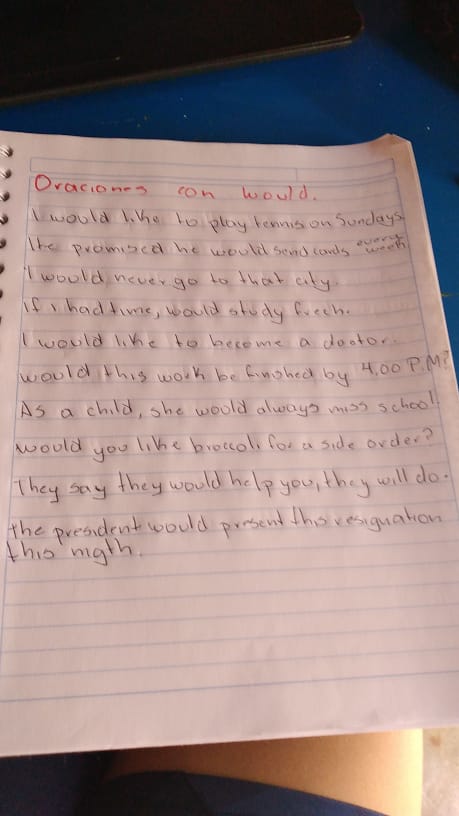 Oraciones con would.
I would like to play tennis on Sundays
He promised he would send cards every week
I would never go to that city.
if i had time, would study frech.
I would like to become a doctor.
would this work be finished by 4.00 P.M?
As a child, she would always miss school.
would you like broccoli for a side order?
They say they would help you, they will do.
the president would present this resignation
this nigth.